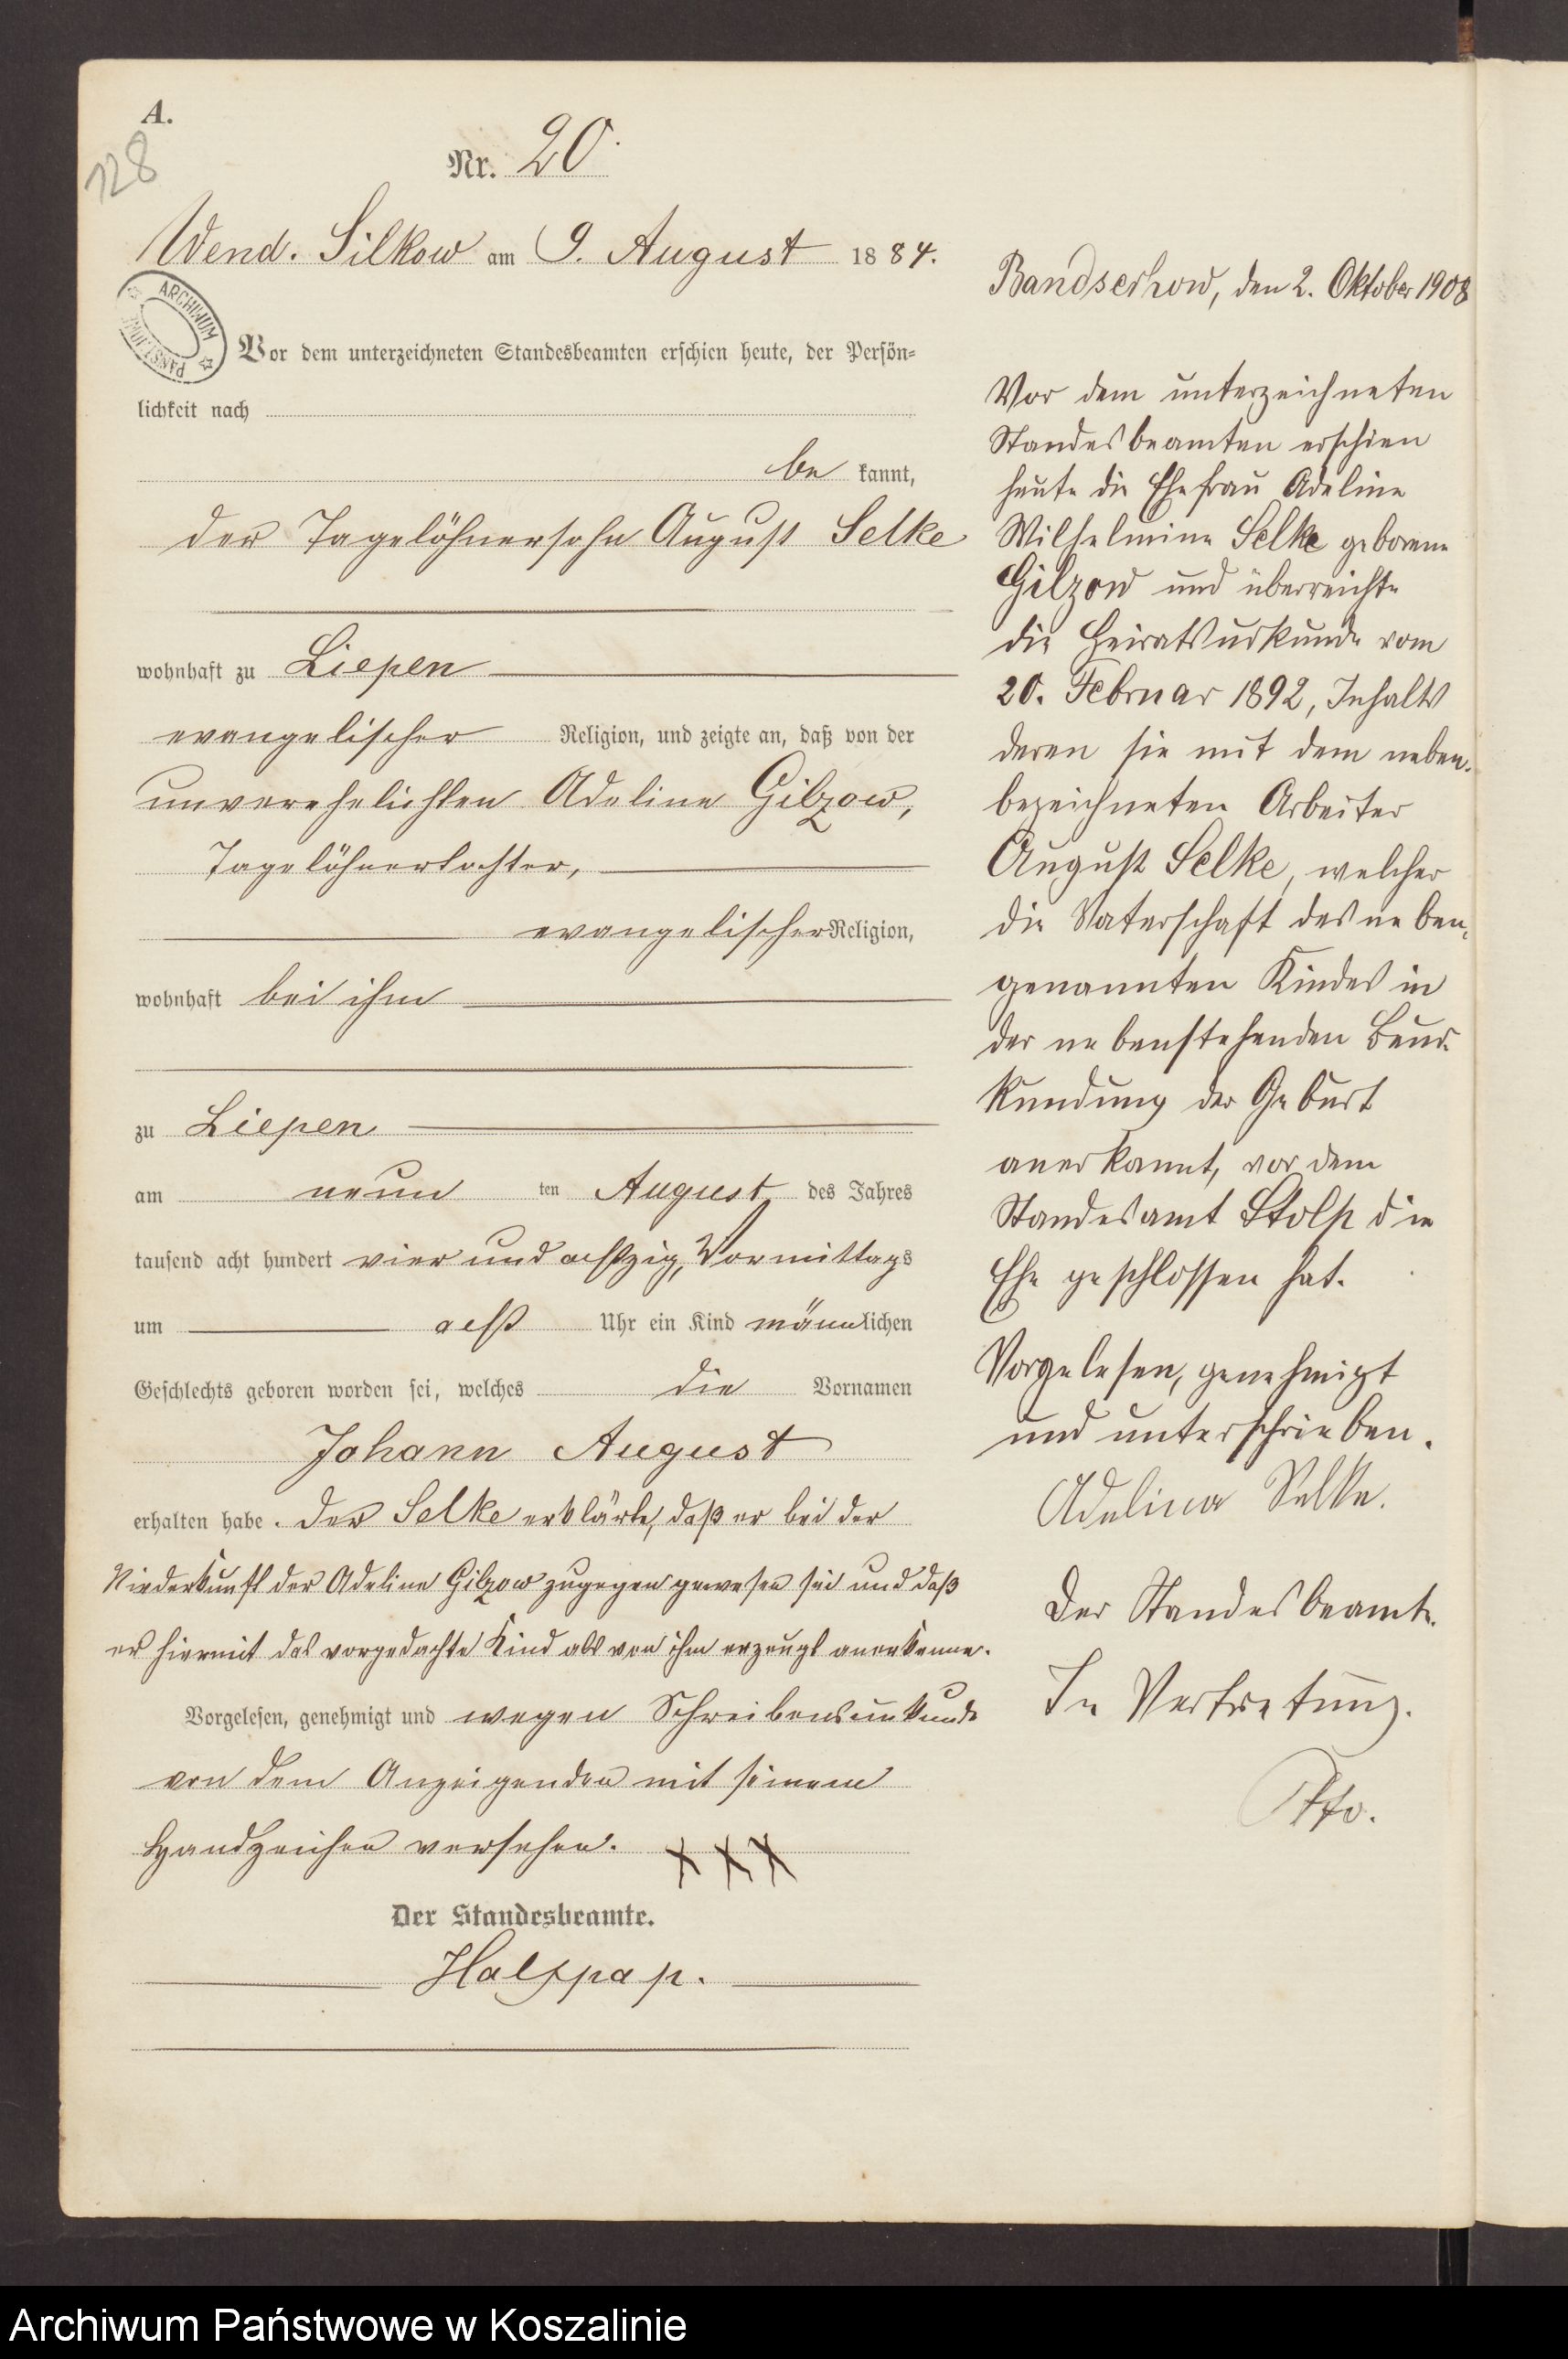 A.
128
Nr. 20.
Wend. Silkow am 9. August 1884.
ARCHIWUM
Vor dem unterzeichneten Standesbeamten erschien heute, der Persön=
lichkeit nach
be kannt,
der Tagelöhnersohn August Selke
wohnhaft zu Liepen
evangelischer Religion, und zeigte an, daß von der
unverehelichten Adeline Gilzow,
Tagelöhnertochter,
evangelischer Religion,
wohnhaft bei ihm
zu Liepen
am neun ten August des Jahres
tausend acht hundert vier und achtzig, Vormittags
um acht Uhr ein Kind männlichen
Geschlechts geboren worden sei, welches die Vornamen
Johann August
erhalten habe. Der Selke erklärte, daß er bei der
Niederkunft der Adeline Gilzow zugegen gewesen sei und daß
er hiermit das vorgedachte Kind als von ihm erzeugt anerkenne.
Vorgelesen, genehmigt und wegen Schreibensunkunde
von dem Anzeigenden mit seinem
Handzeichen versehen. XXX
Der Standesbeamte.
Halfpap.
Bandsechow, den 2. Oktober 1908
Vor dem unterzeichneten
Standesbeamten erschien
heute die Ehefrau Adeline
Wilhelmine Selke geborene
Gilzow und überreichte
die Heiratsurkunde vom
20. Februar 1892, Inhalts
deren sie mit dem neben-
bezeichneten Arbeiter
August Selke, welcher
die Vaterschaft des neben-
genannten Kindes in
der nebenstehenden Beur-
kundung der Geburt
anerkannt, vor dem
Standesamt Stolp die
Ehe geschlossen hat.
Vorgelesen, genehmigt
und unterschrieben.
Adeline Selke.
Der Standesbeamte.
In Vertretung.
Otto.
Archiwum Państwowe w Koszalinie